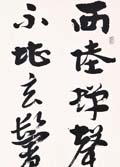 西陸蟬聲
不堪玄鬢